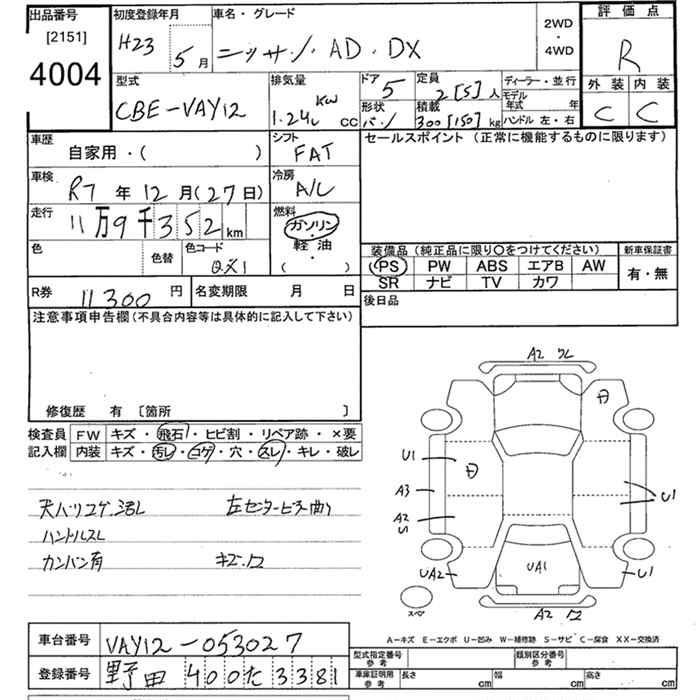 出品番号
[2151]
4004
初度登録年月
H23 5月
車名・グレード
ニッサン AD・DX
2WD
・
4WD
評価点
R
外装 内装
C C
型式
CBE-VAY12
排気量
1.24L KW cc
ドア
5
形状
バン
定員
2[5]人
積載
300[150]kg
ディーラー・並行
モデル年式 年
ハンドル 左・右
車歴
自家用・( )
シフト
FAT
セールスポイント(正常に機能するものに限ります)
車検
R7年12月(27日)
冷房
A/C
走行
11万9千352km
燃料
ガソリン
・
軽油
( )
色
色替
色コード
QX1
装備品(純正品に限り○をつけてください)
PS PW ABS エアB AW
SR ナビ TV カワ
新車保証書
有・無
R券 11300円
名変期限 月 日
後日品
注意事項申告欄(不具合内容等は具体的に記入して下さい)
修復歴 有 [箇所 ]
検査員記入欄
FW キズ・飛石・ヒビ割・リペア跡・×要
内装 キズ・汚レ・コゲ・穴・スレ・キレ・破レ
天バリコゲ 左センターピラー曲り
ハンドルスレ
カンバン有
A2
U1
A3
A2
S
UA2
UA1
U1
U1
A2
スペア
A-キズ E-エクボ U-凹み W-補修跡 S-サビ C-腐食 XX-交換済
車台番号 VAY12-053027
登録番号 野田400た3381
型式指定番号
参考
類別区分番号
参考
車庫証明用
参考
長さ cm 幅 cm 高さ cm